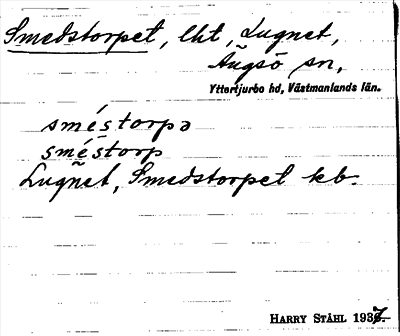 Smedstorpet, lht, Lugnet,
Ängsö sn,
Yttertjurbo hd, Västmanlands län.
sméstorpə
sméstorp
Lugnet, Smedstorpet kb.
HARRY STÅHL 1937.